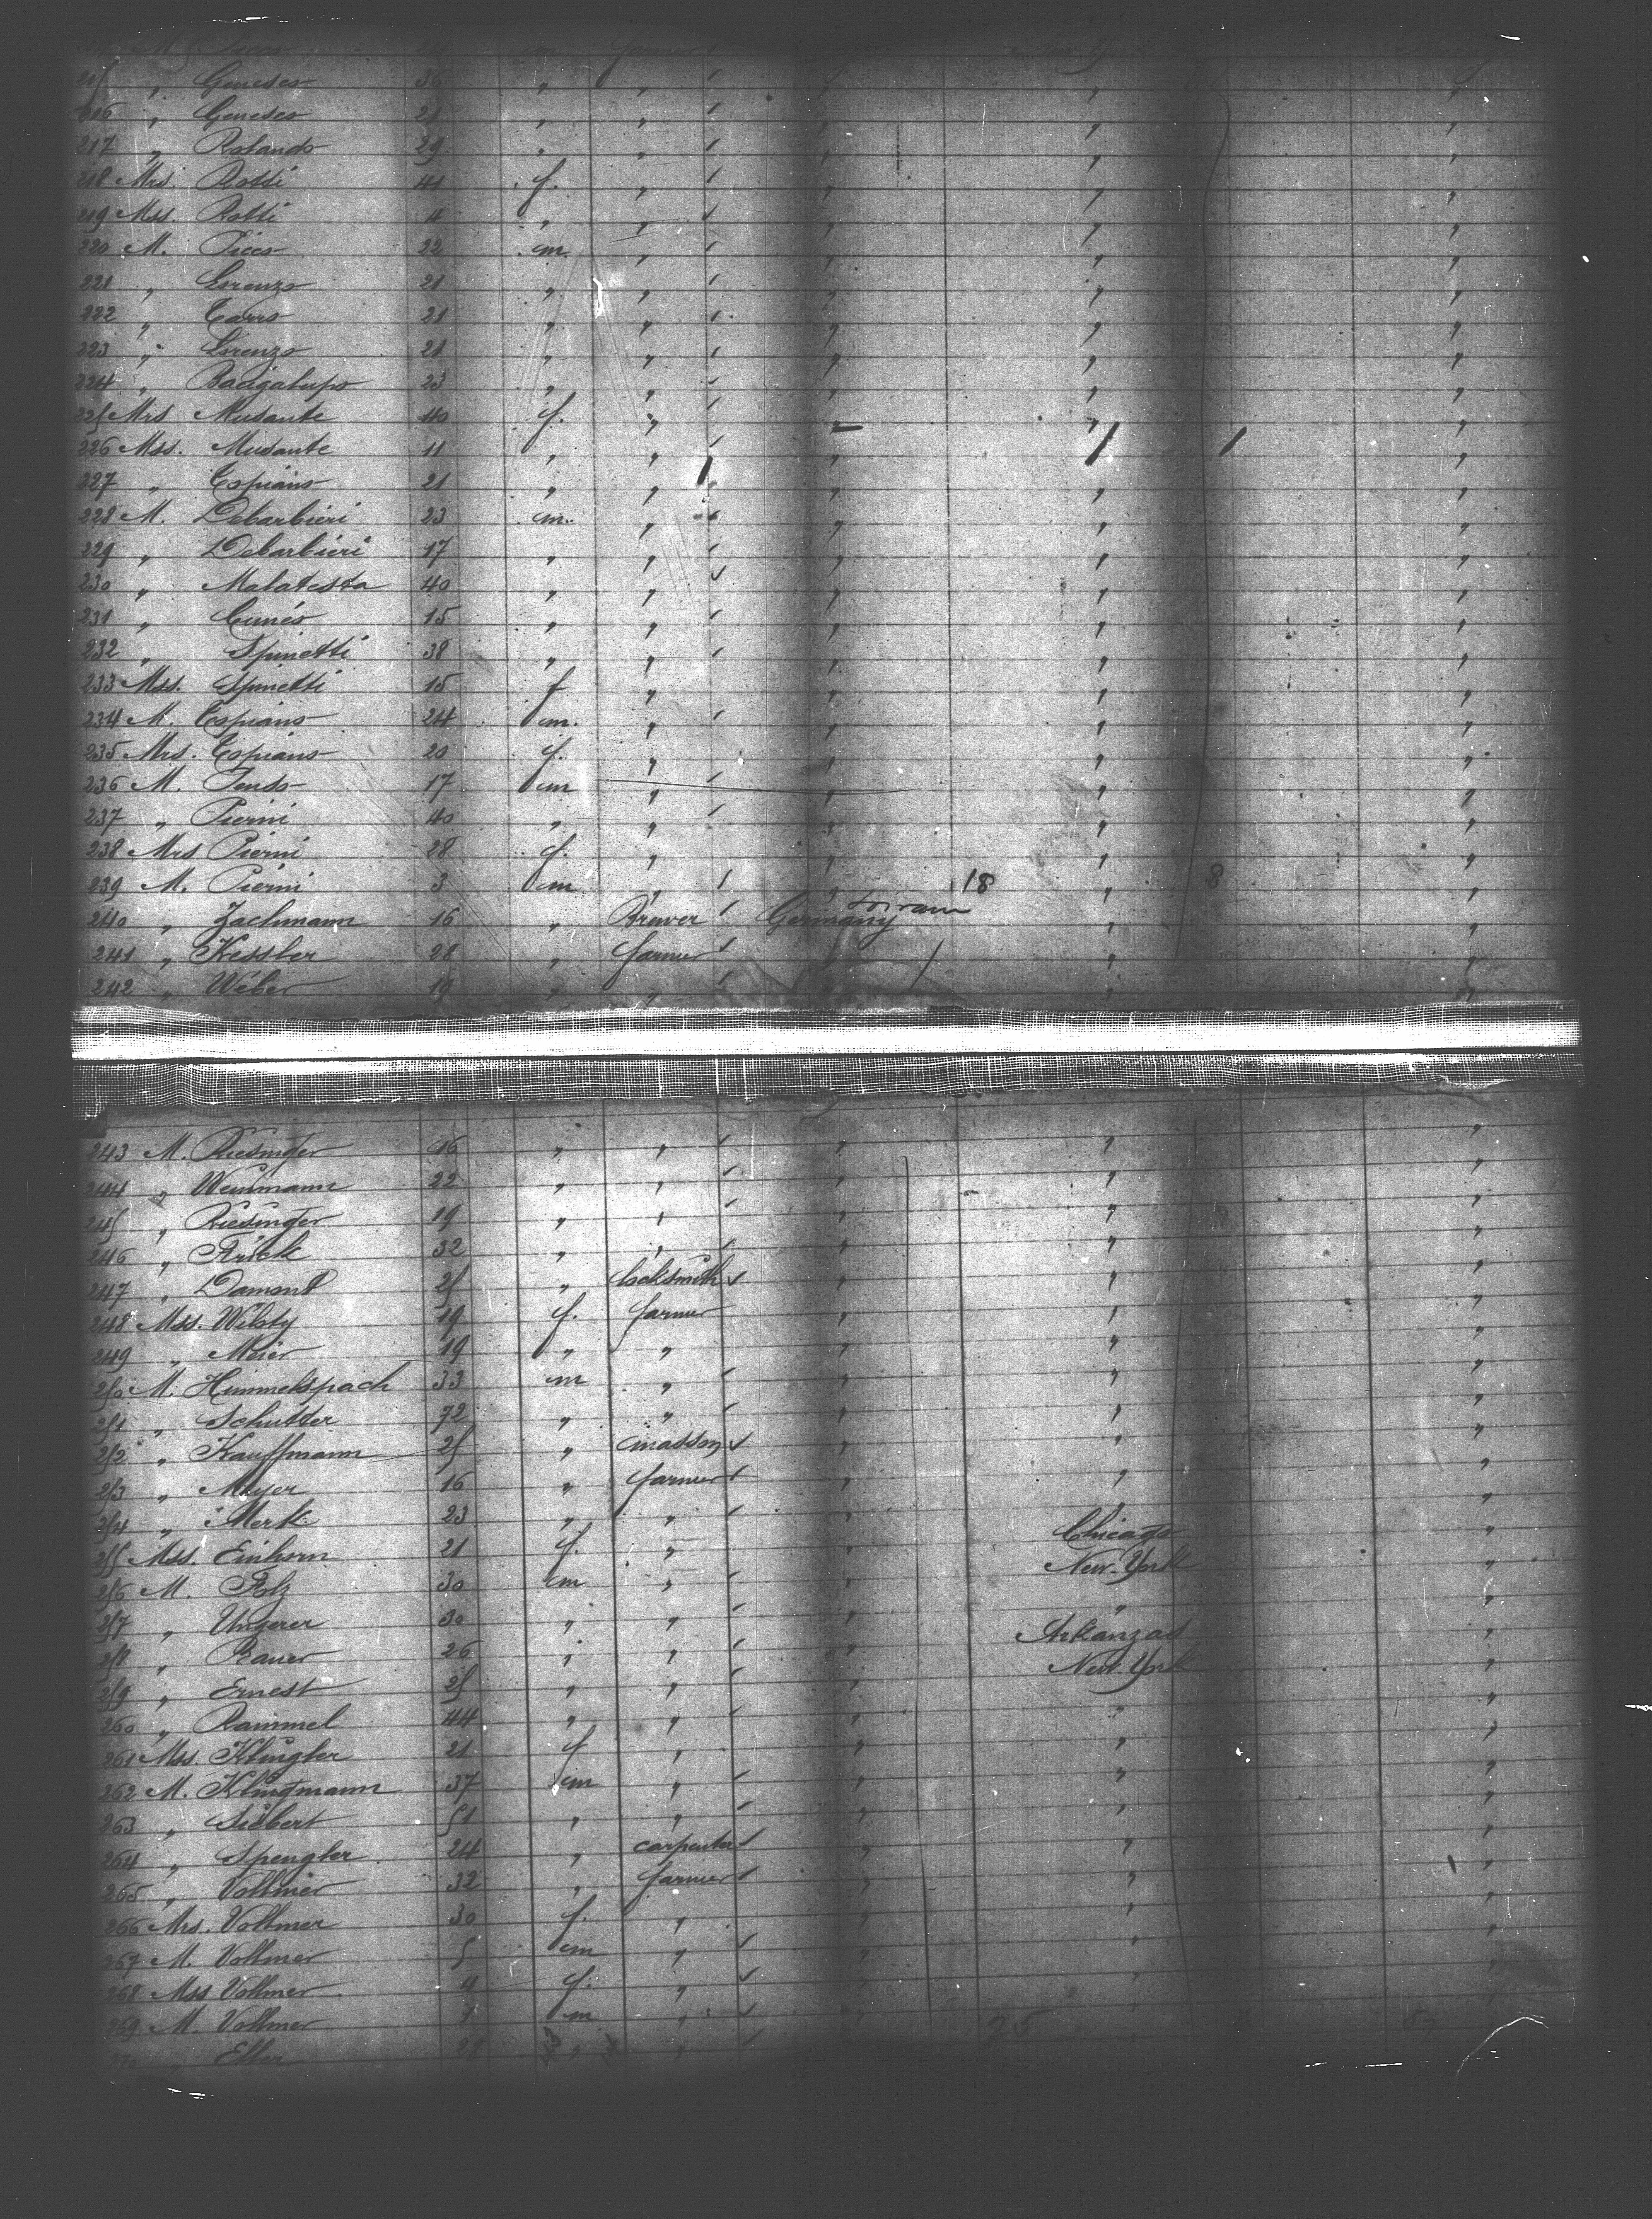 M. Picco m farmer New York
215 " Geneses 36 " "
216 " Geneses 21 " " " " "
217 " Rolando 29 " " " " "
218 Mrs. Rossi 41 f. " " " "
219 Mss. Rossi 4 " " " " "
220 M. Picco 22 m " " " "
221 " Lorenzo 21 " " " " "
222 " Carro 21 " " " " "
223 " Lorenzo 21 " " " " "
224 " Bacigalupo 23 " " " " "
225 Mrs Musante 40 f. " " " "
226 Mss. Musante 11 " " " " "
227 " Copiano 21 " " " " "
228 M. Debarbieri 23 m. " " " "
229 " Debarbieri 17 " " " " "
230 " Malatesta 40 " " " " "
231 " Cuneo 15 " " " " "
232 " Spinetti 38 " " " " "
233 Mss. Spinetti 15 f " " " "
234 M. Copiano 24 m. " " " "
235 Mrs. Copiano 20 f. " " " "
236 M. Tenso 17 m " " " "
237 " Pierini 40 " " " " "
238 Mrs Pierini 28 f. " " " "
239 M. Pierini 3 m " " 18 " 8 "
240 " Zachmann 16 " Brewer Germany " "
241 " Kessler 28 " farmer " " "
242 " Weber 19 " " " " "
243 M. Riesinger 16 " " " " "
244 " Weinmann 22 " " " " "
245 " Riesinger 19 " " " " "
246 " Frick 32 " " " " "
247 " Damont 25 " locksmith " " "
248 Mss. Wilsty 19 f. farmer " " "
249 " Meier 19 " " " " "
250 M. Himmelspach 33 m " " " "
251 " Schutter 72 " " " " "
252 " Kauffmann 25 " masson " " "
253 " Meyer 16 " farmer " " "
254 " Merk 23 " " " Chicago "
255 Mss. Einhorn 21 f. " " New-York "
256 M. Folz 30 m " " " "
257 " Ungerer 30 " " " Arkanzas "
258 " Bauer 26 " " " New-York "
259 " Ernest 25 " " " " "
260 " Rammel 44 " " " " "
261 Mss. Klingler 21 f " " " "
262 M. Klingmann 37 m " " " "
263 " Siebert 51 " " " " "
264 " Spengler 24 " carpenter " " "
265 " Vollmer 32 " farmer " " "
266 Mrs. Vollmer 30 f. " " " "
267 M. Vollmer 5 m " " " "
268 Mss Vollmer 4 f. " " " "
269 M. Vollmer 1 m " " " "
270 " Eller 28 " " 25